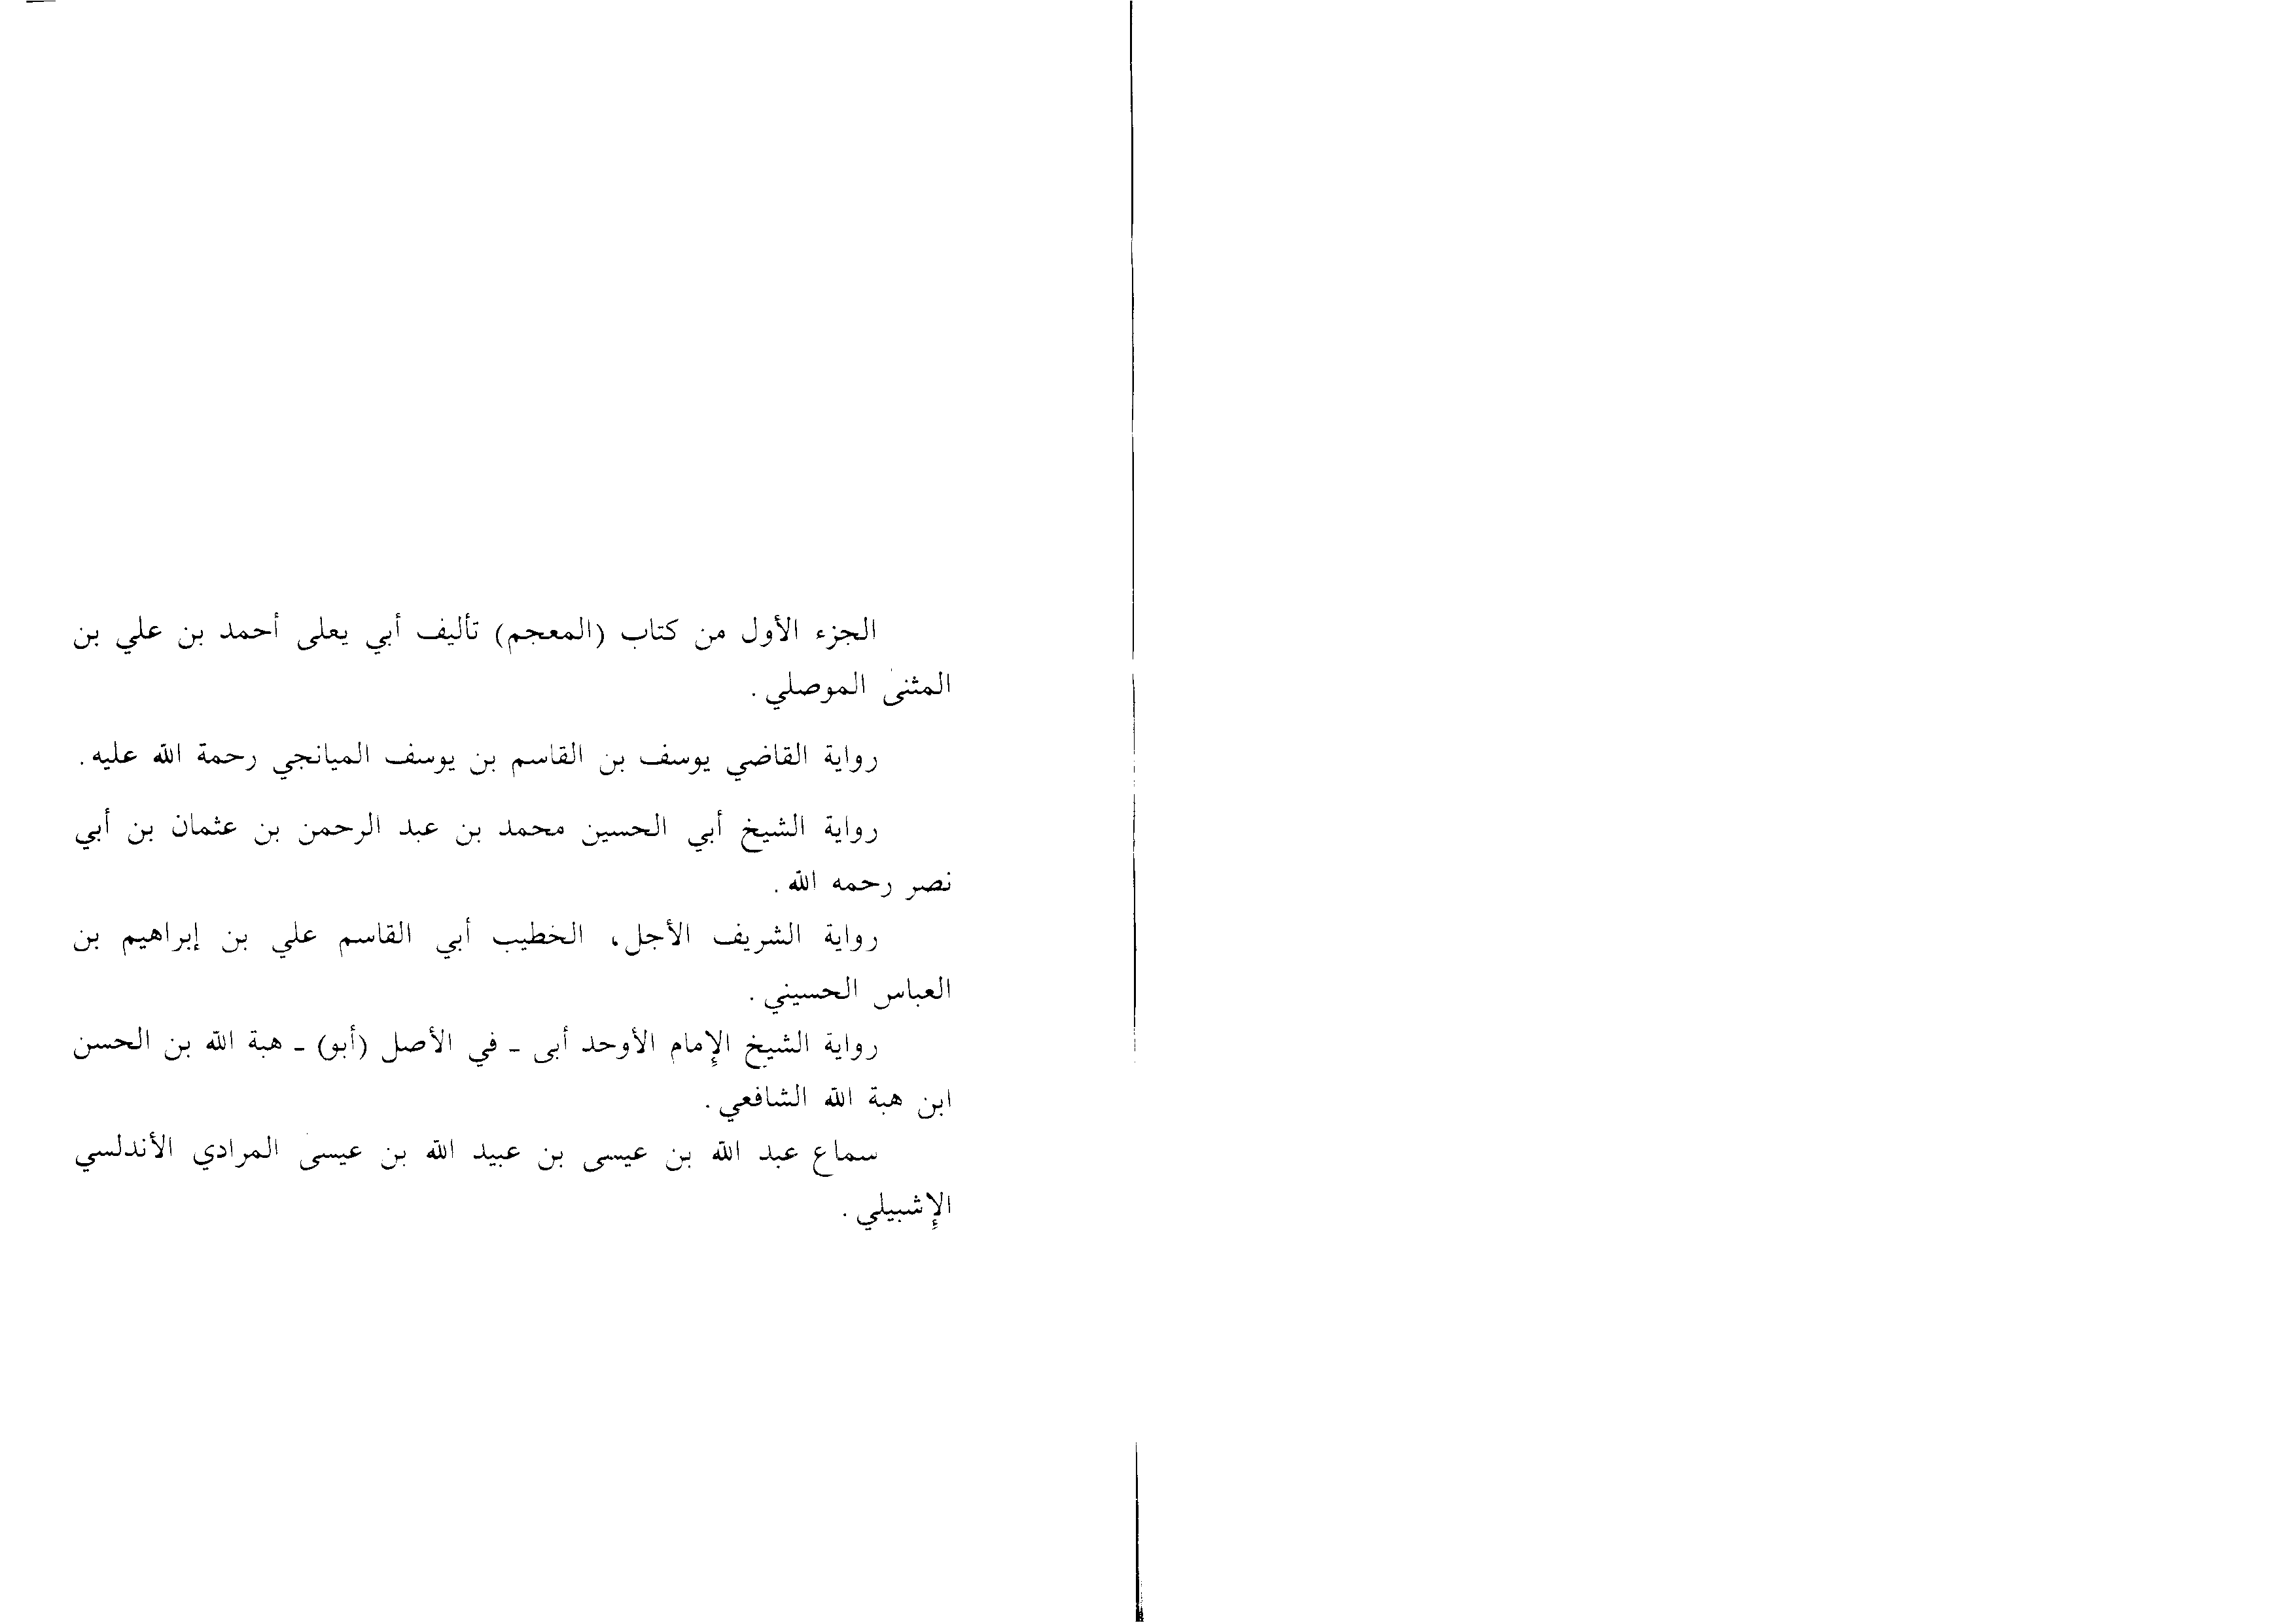 الجزء الأول من كتاب (المعجم) تأليف أبي يعلى أحمد بن علي بن
المثنىٰ الموصلي.
رواية القاضي يوسف بن القاسم بن يوسف الميانجي رحمة الله عليه.
رواية الشيخ أبي الحسين محمد بن عبد الرحمن بن عثمان بن أبي
نصر رحمه الله.
رواية الشريف الأجل، الخطيب أبي القاسم علي بن إبراهيم بن
العباس الحسيني.
رواية الشيخ الإمام الأوحد أبى ـ في الأصل (أبو) ـ هبة الله بن الحسن
ابن هبة الله الشافعي.
سماع عبد الله بن عيسى بن عبيد الله بن عيسىٰ المرادي الأندلسي
الإشبيلي.